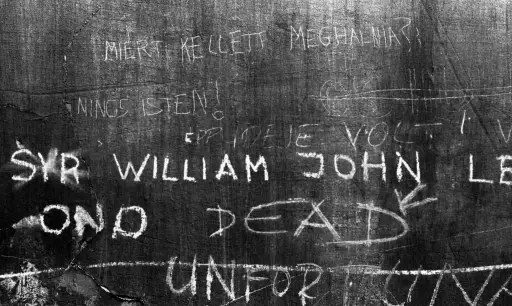 MIÉRT KELLETT MEGHALNIA?!
NINCS ISTEN!
IDEJE VOLT!
SYR WILLIAM JOHN LE
OND DEAD
UNFORTUNA